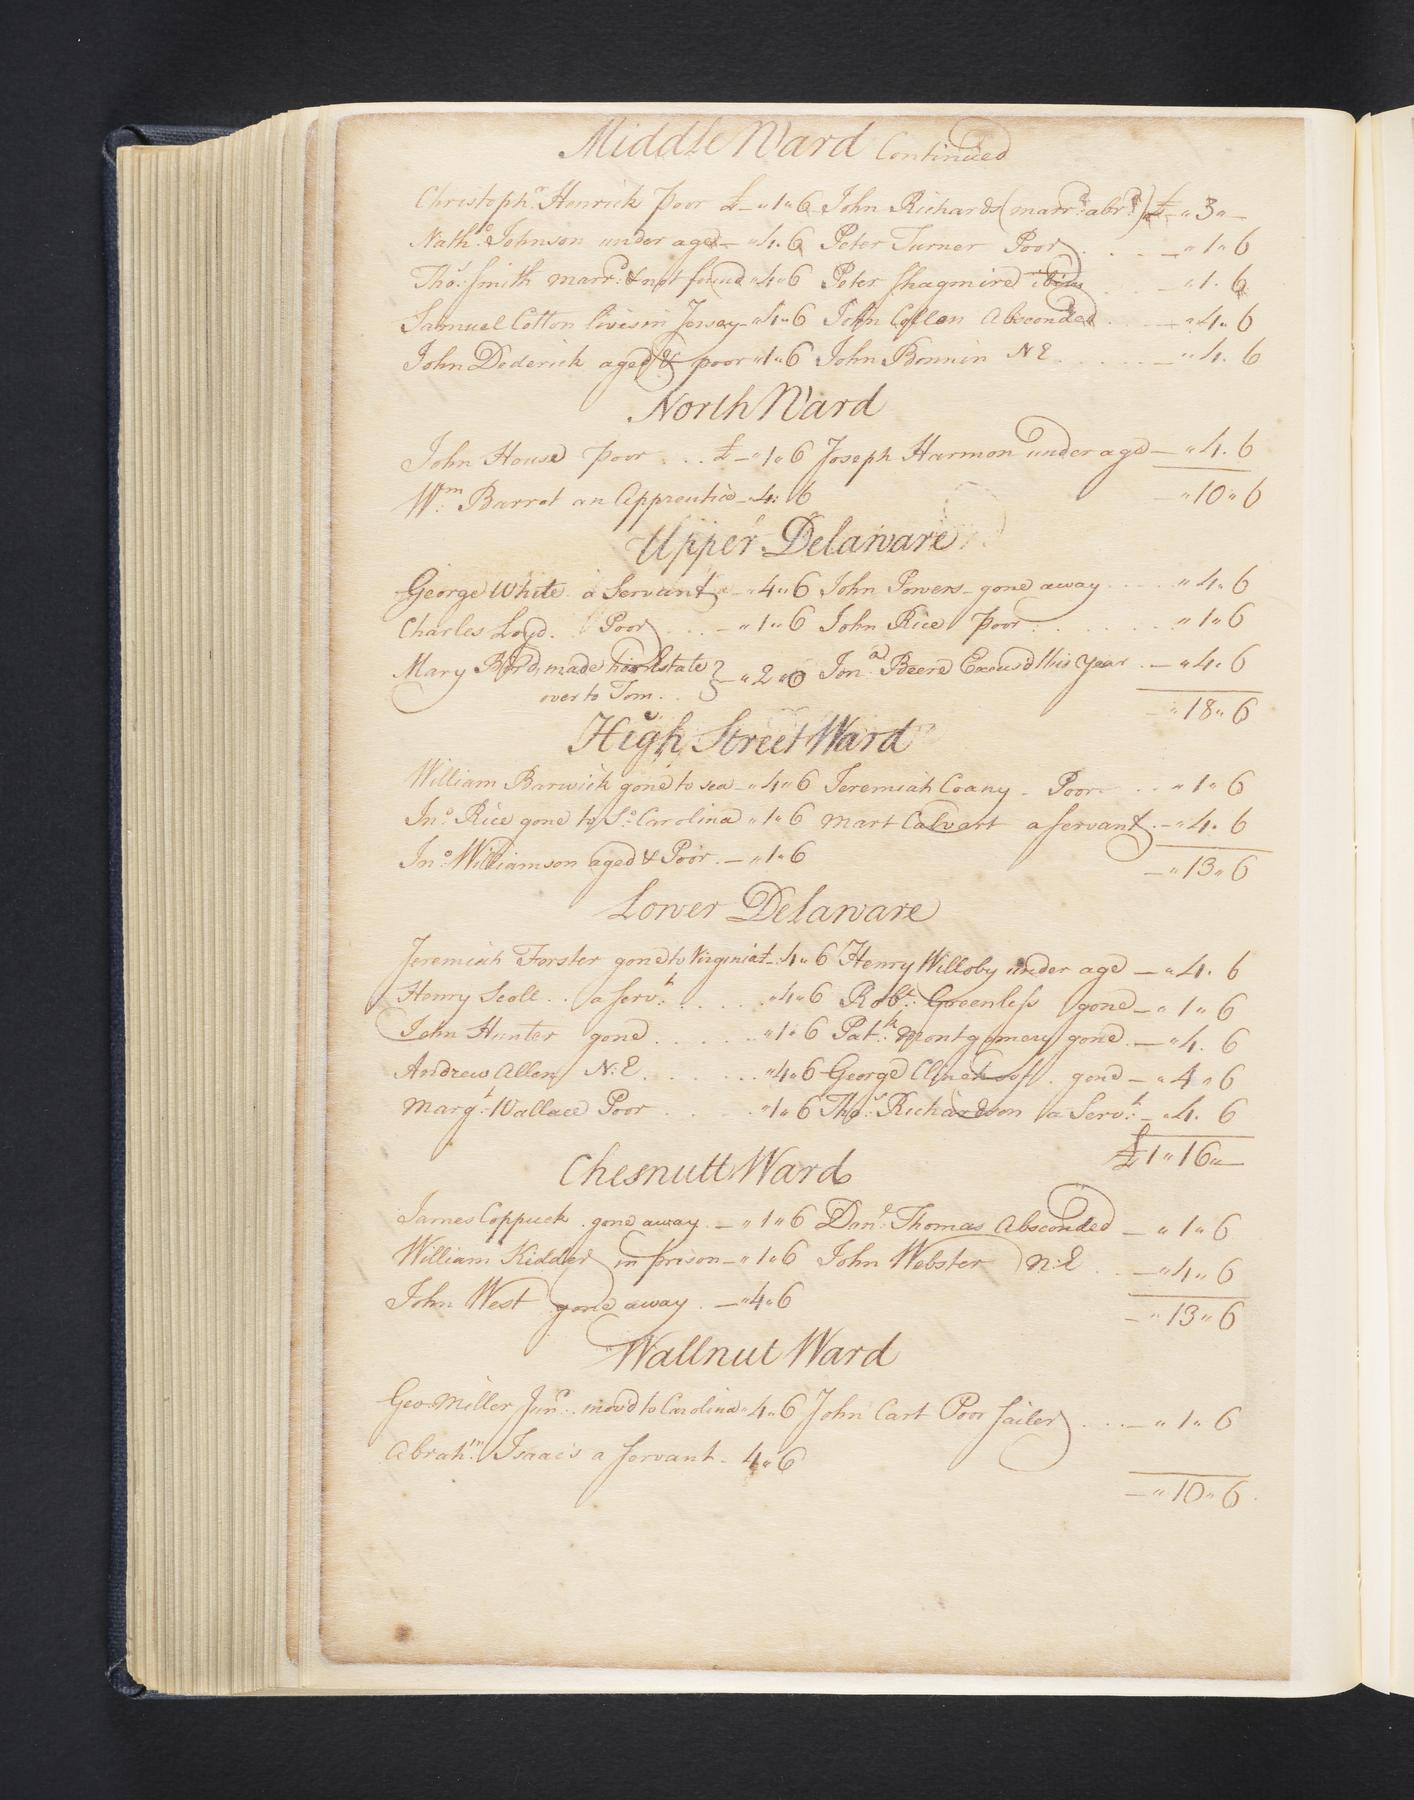 Middle Ward Continued
Christoph.r Henrick poor £ - „ 1 „ 6 John Richards (marr.d abr.d) £ - „ 3 „ -
Nath.l Johnson under age - „ 4 „ 6 Peter Turner Poor . . . - „ 1 „ 6
Tho.s Smith marr.d & not found „ 4 „ 6 Peter Shagmire . . - „ 1 „ 6
Samuel Cotton lives in Jersey - „ 4 „ 6 John Collen Absconded . . - „ 4 „ 6
John Dederick aged & poor „ 1 „ 6 John Bonnin N E . . . - „ 4 „ 6
North Ward
John House poor . . £ - „ 1 „ 6 Joseph Harmon under age - „ 4 „ 6
W.m Barrot an Apprentice - 4 „ 6 - „ 10 „ 6
Upper Delaware
George White a Servant - „ 4 „ 6 John Powers - gone away . . . „ 4 „ 6
Charles Loyd. Poor . . - „ 1 „ 6 John Rice poor . . . . „ 1 „ 6
Mary made her Estate } - „ 2 „ 6 Jon.a Beere Excus'd this year . - „ 4 „ 6
over to Tom . .
- „ 18 „ 6
High Street Ward
William Barwick gone to sea - „ 4 „ 6 Jeremiah Coany - Poor . . „ 1 „ 6
Jn.o Rice gone to S.o Carolina „ 1 „ 6 Mart Calvart a servant . - „ 4 „ 6
Jn.o Williamson aged & Poor . - „ 1 „ 6 - „ 13 „ 6
Lower Delaware
Jeremiah Forster gone to Virginia - „ 4 „ 6 Henry Willoby under age - „ 4 „ 6
Henry Scoll . . a Serv.t . . . . „ 4 „ 6 Rob.t Greenless gone - „ 1 „ 6
John Hunter gone . . . . . „ 1 „ 6 Pat.k Montgomery gone . - „ 4 „ 6
Andrew Allen N:E . . . . . „ 4 „ 6 George gone - „ 4 „ 6
Marg.t Wallace Poor . . . . „ 1 „ 6 Tho.s Richardson a Serv.t - „ 4 „ 6
£ 1 „ 16 „ -
Chesnutt Ward
James Coppuck . gone away . - „ 1 „ 6 Dan.l Thomas Absconded - „ 1 „ 6
William Kidder in prison - „ 1 „ 6 John Webster N:E . . - „ 4 „ 6
John West gone away . - „ 4 „ 6 - „ 13 „ 6
Wallnut Ward
Geo Miller Jun.r . mov'd to Carolina „ 4 „ 6 John Cart Poor Sailer . . . - „ 1 „ 6
Abrah.m Isaacs a servant - 4 „ 6
- „ 10 „ 6